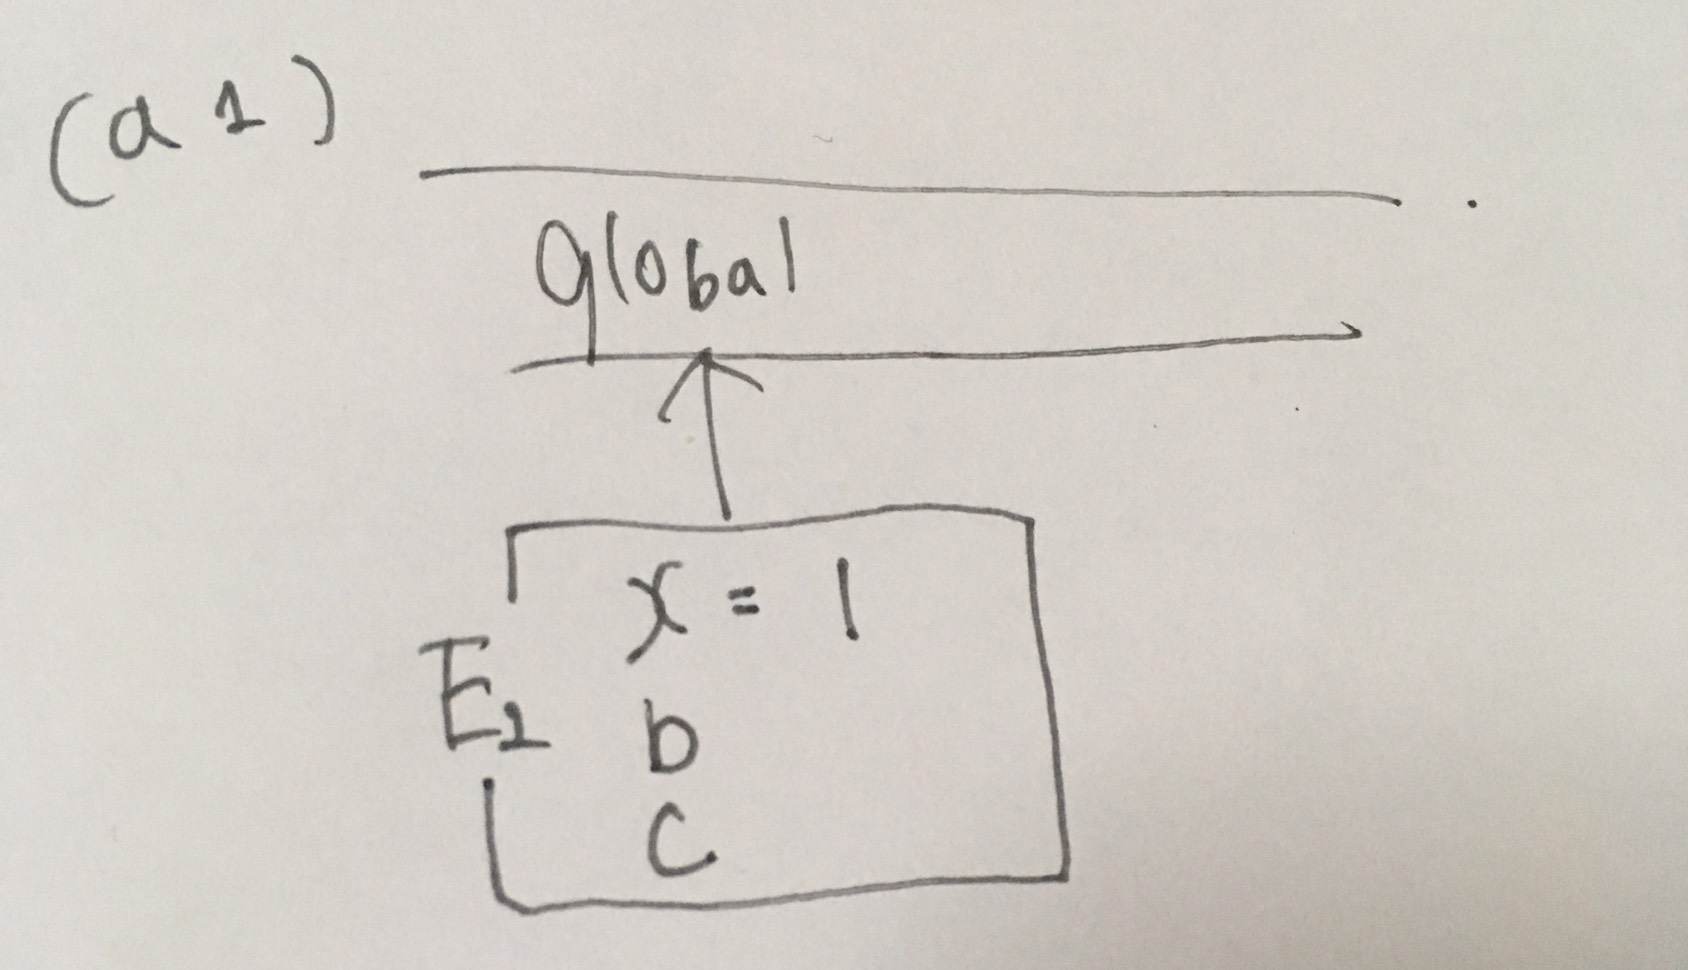 (a 1)
global
x = 1
E1 b
c